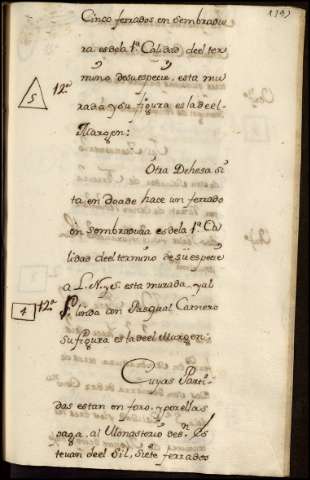 Cinco ferrados en Sembradu
ra es dela 1.ª Calidad deel ter
mino desuespecie, esta mu
5 12.ª
rada y su figura es la deel
Margen:
Otra Dehesa Si
ta en donde hace un ferrado
en Sembradura es dela 1.ª Ca
lidad deel termino de su especie
a L. N. y S. esta murada, y al
4 12.ª
P. linda con Pasqual Carnero
su figura es la deel Margen:
Cuyas Parti
das estan en foro, y por ellas
paga, al Monasterio de Sn. Es
tevan deel Sil, Siete ferrados